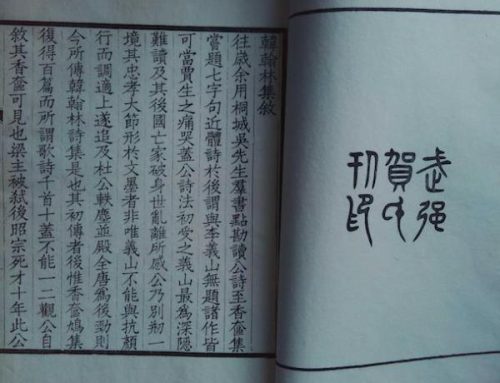 武强
賀氏
刊印
韓翰林集敘
往歲余用桐城吳先生羣書點勘讀公詩至香奩集
嘗題七字句近體詩於後謂與李義山無題諸作皆
可當賈生之痛哭蓋公詩法初受之義山最爲深隱
難讀及其後國亡家破身世亂離所感公乃別刱一
境其忠孝大節形於文墨者非唯義山不能與抗顏
行而調適上遂追及杜公軼塵並殿全唐爲後勁則
今所傳韓翰林詩集是也其初傳者後惟香奩鳩集
復得百篇而所謂歌詩千首十蓋不能一二觀公自
敘其香奩可見也梁主被弒後昭宗死才十年此公